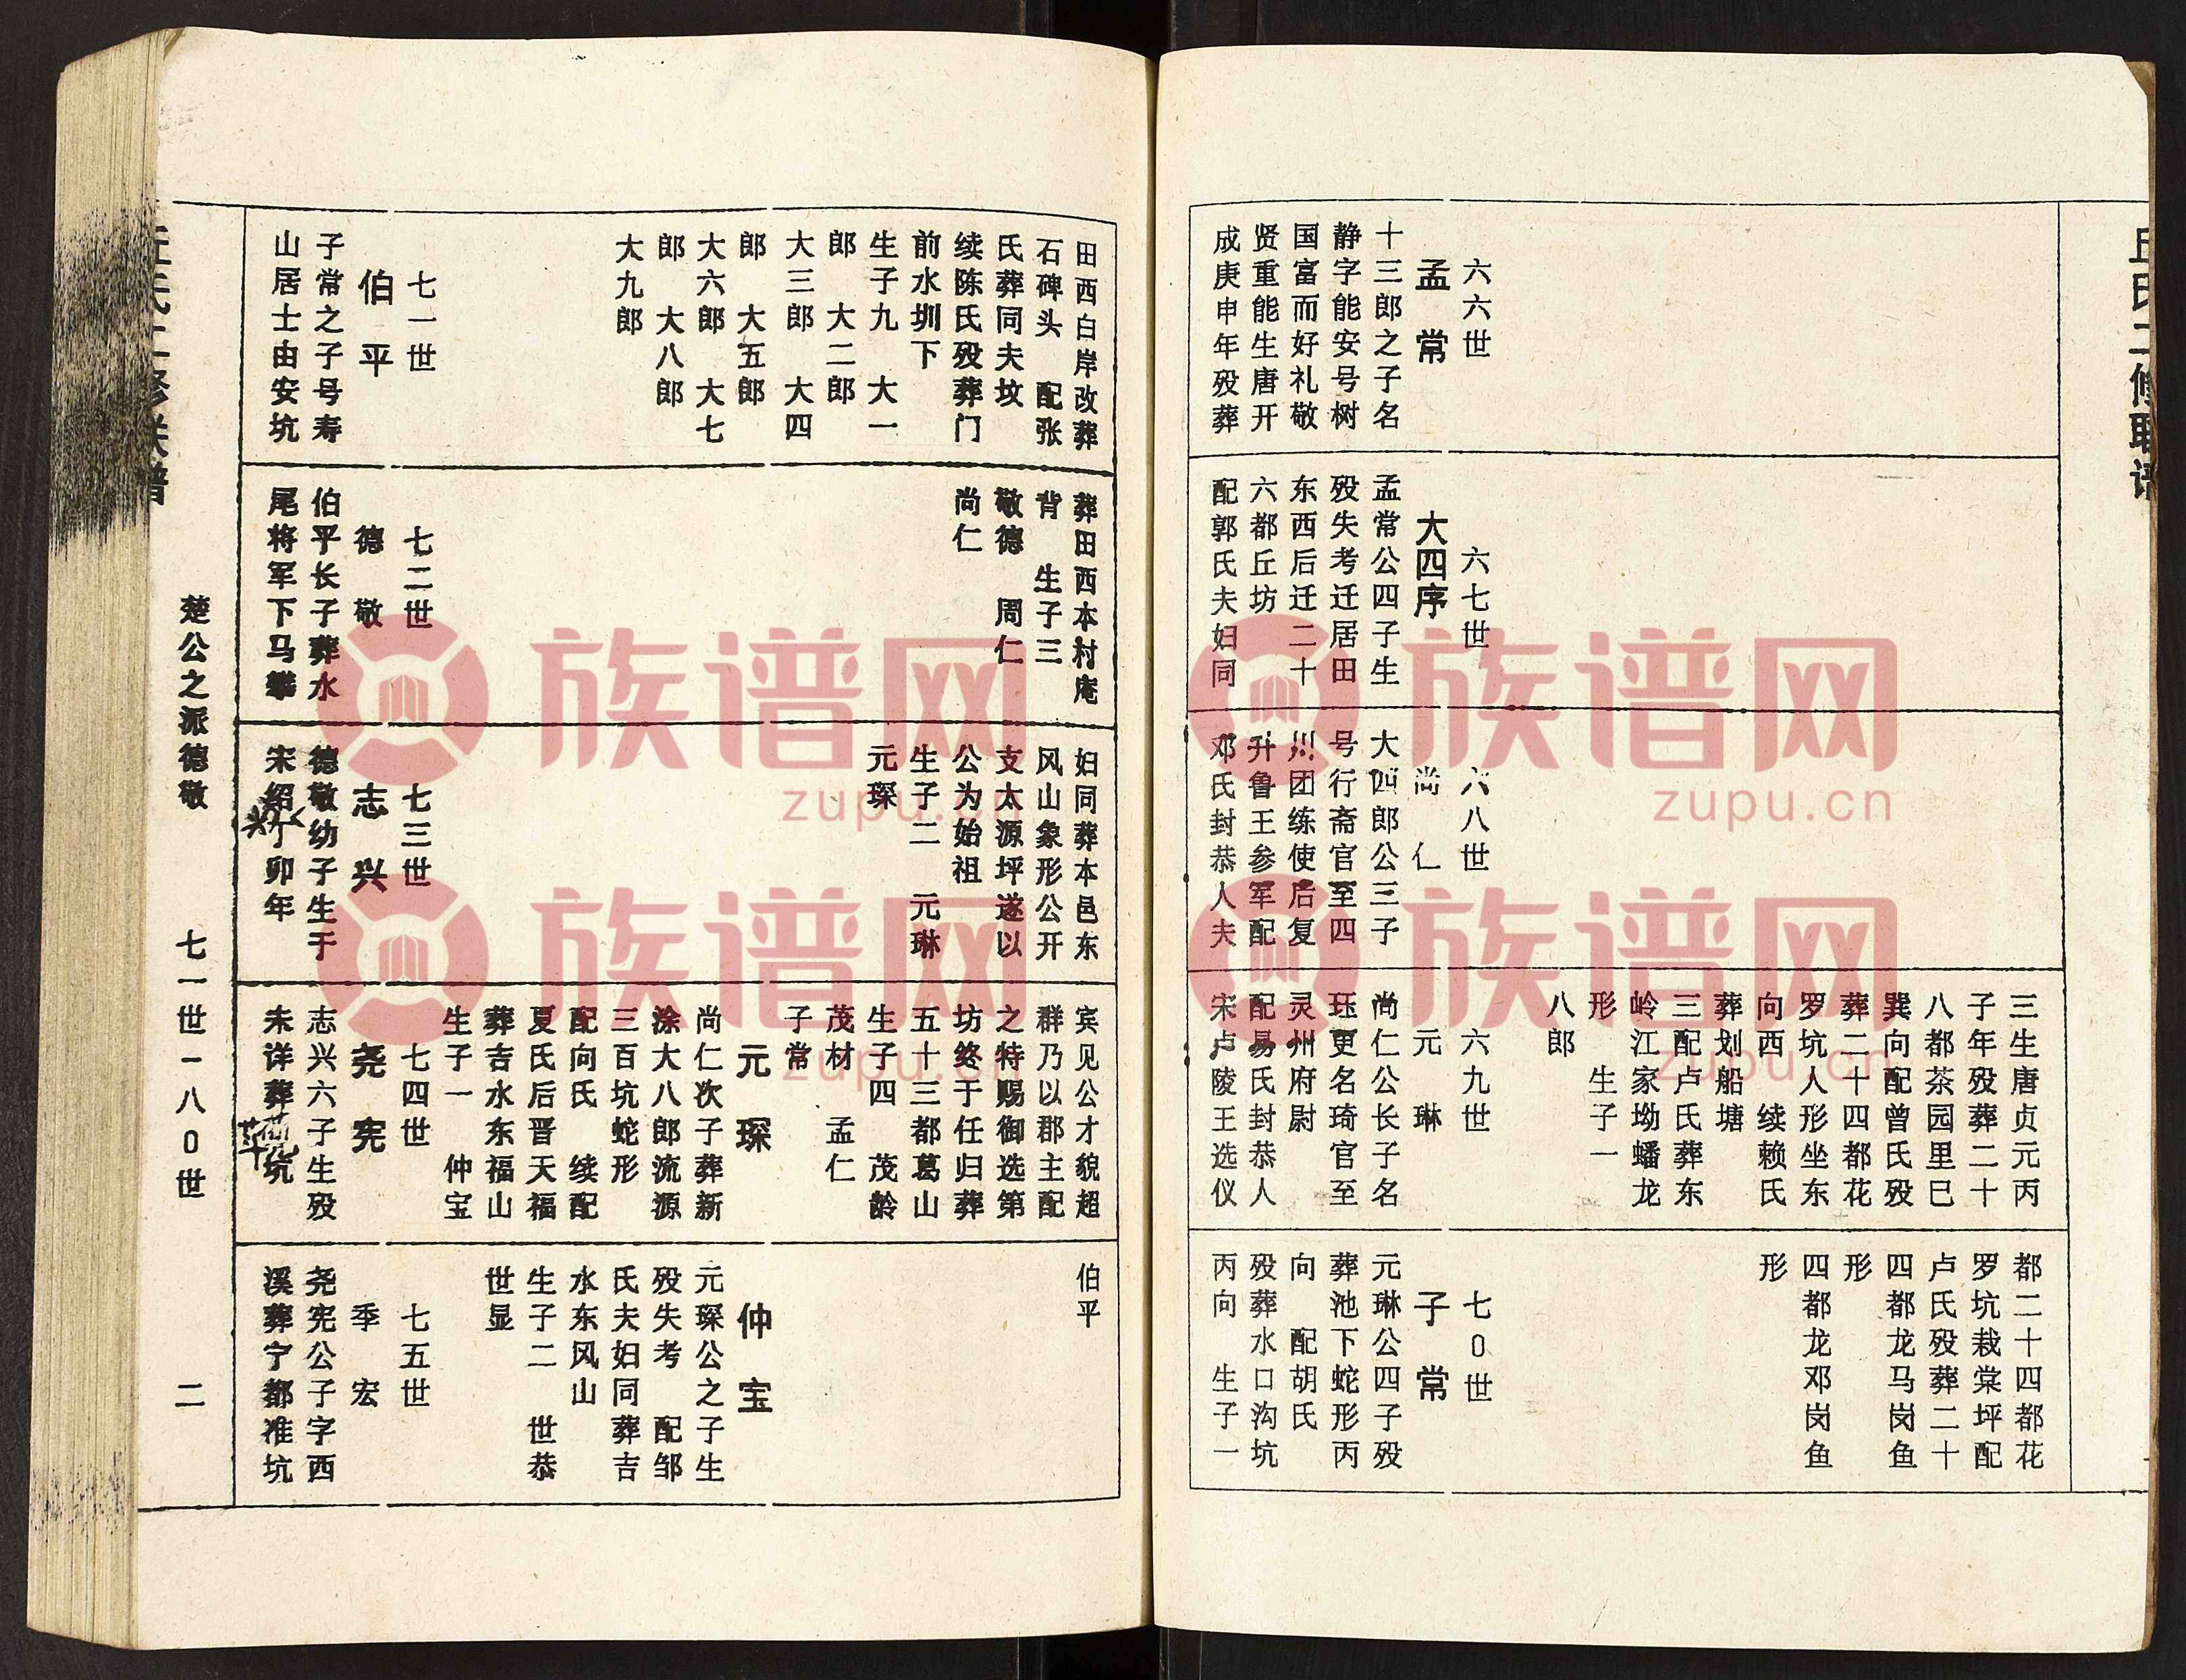 丘氏二修联谱
六六世
孟常
十三郎之子名
静字能安号树
国富而好礼敬
贤重能生唐开
成庚申年殁葬
六七世
大四序
孟常公四子生
殁失考迁居田
东西后迁二十
六都丘坊
配郭氏夫妇同
六八世
尚仁
大四郎公三子
号行斋官至四
川团练使后复
升鲁王参军配
邓氏封恭人夫
三生唐贞元丙
子年殁葬二十
八都茶园里巳
巽向配曾氏殁
葬二十四都花
罗坑人形坐东
向西 续赖氏
葬划船塘
三配卢氏葬东
岭江家坳蟠龙
形 生子一
八郎
六九世
元琳
尚仁公长子名
珏更名琦官至
灵州府尉
配易氏封恭人
宋卢陵王选仪
都二十四都花
罗坑栽棠坪配
卢氏殁葬二十
四都龙马岗鱼
形
四都龙邓岗鱼
形
七0世
子常
元琳公四子殁
葬池下蛇形丙
向 配胡氏
殁葬水口沟坑
丙向 生子一
田西白岸改葬
石碑头 配张
氏葬同夫坟
续陈氏殁葬门
前水圳下
生子九 大一
郎 大二郎
大三郎 大四
郎 大五郎
大六郎 大七
郎 大八郎
大九郎
七一世
伯平
子常之子号寿
山居士由安坑
葬田西本村庵
背 生子三
敬德 周仁
尚仁
七二世
德敬
伯平长子葬水
尾将军下马
妇同葬本邑东
风山象形公开
支太源坪遂以
公为始祖
生子二 元琳
元琛
七三世
志兴
德敬幼子生于
宋绍 丁卯年
宾见公才貌超
群乃以郡主配
之特赐御选第
坊终于任归葬
五十三都葛山
生子四 茂龄
茂材 孟仁
子常
元琛
尚仁次子葬新
涂大八郎流源
三百坑蛇形
配向氏 续配
夏氏后晋天福
葬吉水东福山
生子一 仲宝
七四世
尧宪
志兴六子生殁
未详葬 坑
伯平
仲宝
元琛公之子生
殁失考 配邹
氏夫妇同葬吉
水东风山
生子二 世恭
世显
七五世
季宏
尧宪公子字西
溪葬宁都准坑
楚公之派德敬 七一世一八0世 二
族谱网
zupu.cn
族谱网
zupu.cn
族谱网
zupu.cn
族谱网
zupu.cn